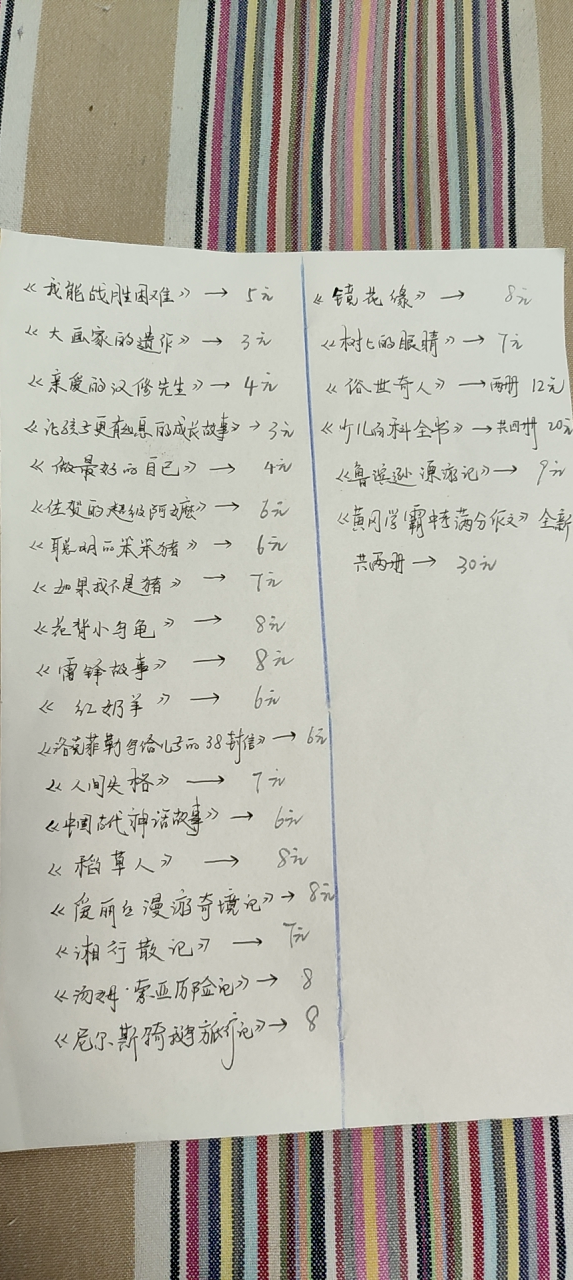 《我能战胜困难》→ 5元
《大画家的遗作》→ 3元
《亲爱的汉修先生》→ 4元
《让孩子更有出息的成长故事》→ 3元
《做最好的自己》→ 4元
《佐贺的超级阿嬷》→ 6元
《聪明的笨笨猪》→ 6元
《如果我不是猪》→ 7元
《花背小乌龟》→ 8元
《雷锋故事》→ 8元
《红奶羊》→ 6元
《洛克菲勒写给儿子的38封信》→ 6元
《人间失格》→ 7元
《中国古代神话故事》→ 6元
《稻草人》→ 8元
《爱丽丝漫游奇境记》→ 8元
《湘行散记》→ 7元
《汤姆·索亚历险记》→ 8
《尼尔斯骑鹅旅行记》→ 8
《镜花缘》→ 8元
《树上的眼睛》→ 7元
《俗世奇人》→ 两册 12元
《少儿百科全书》→ 共四册 20元
《鲁滨逊漂流记》→ 9元
《黄冈学霸中考满分作文》全新
共两册 → 30元